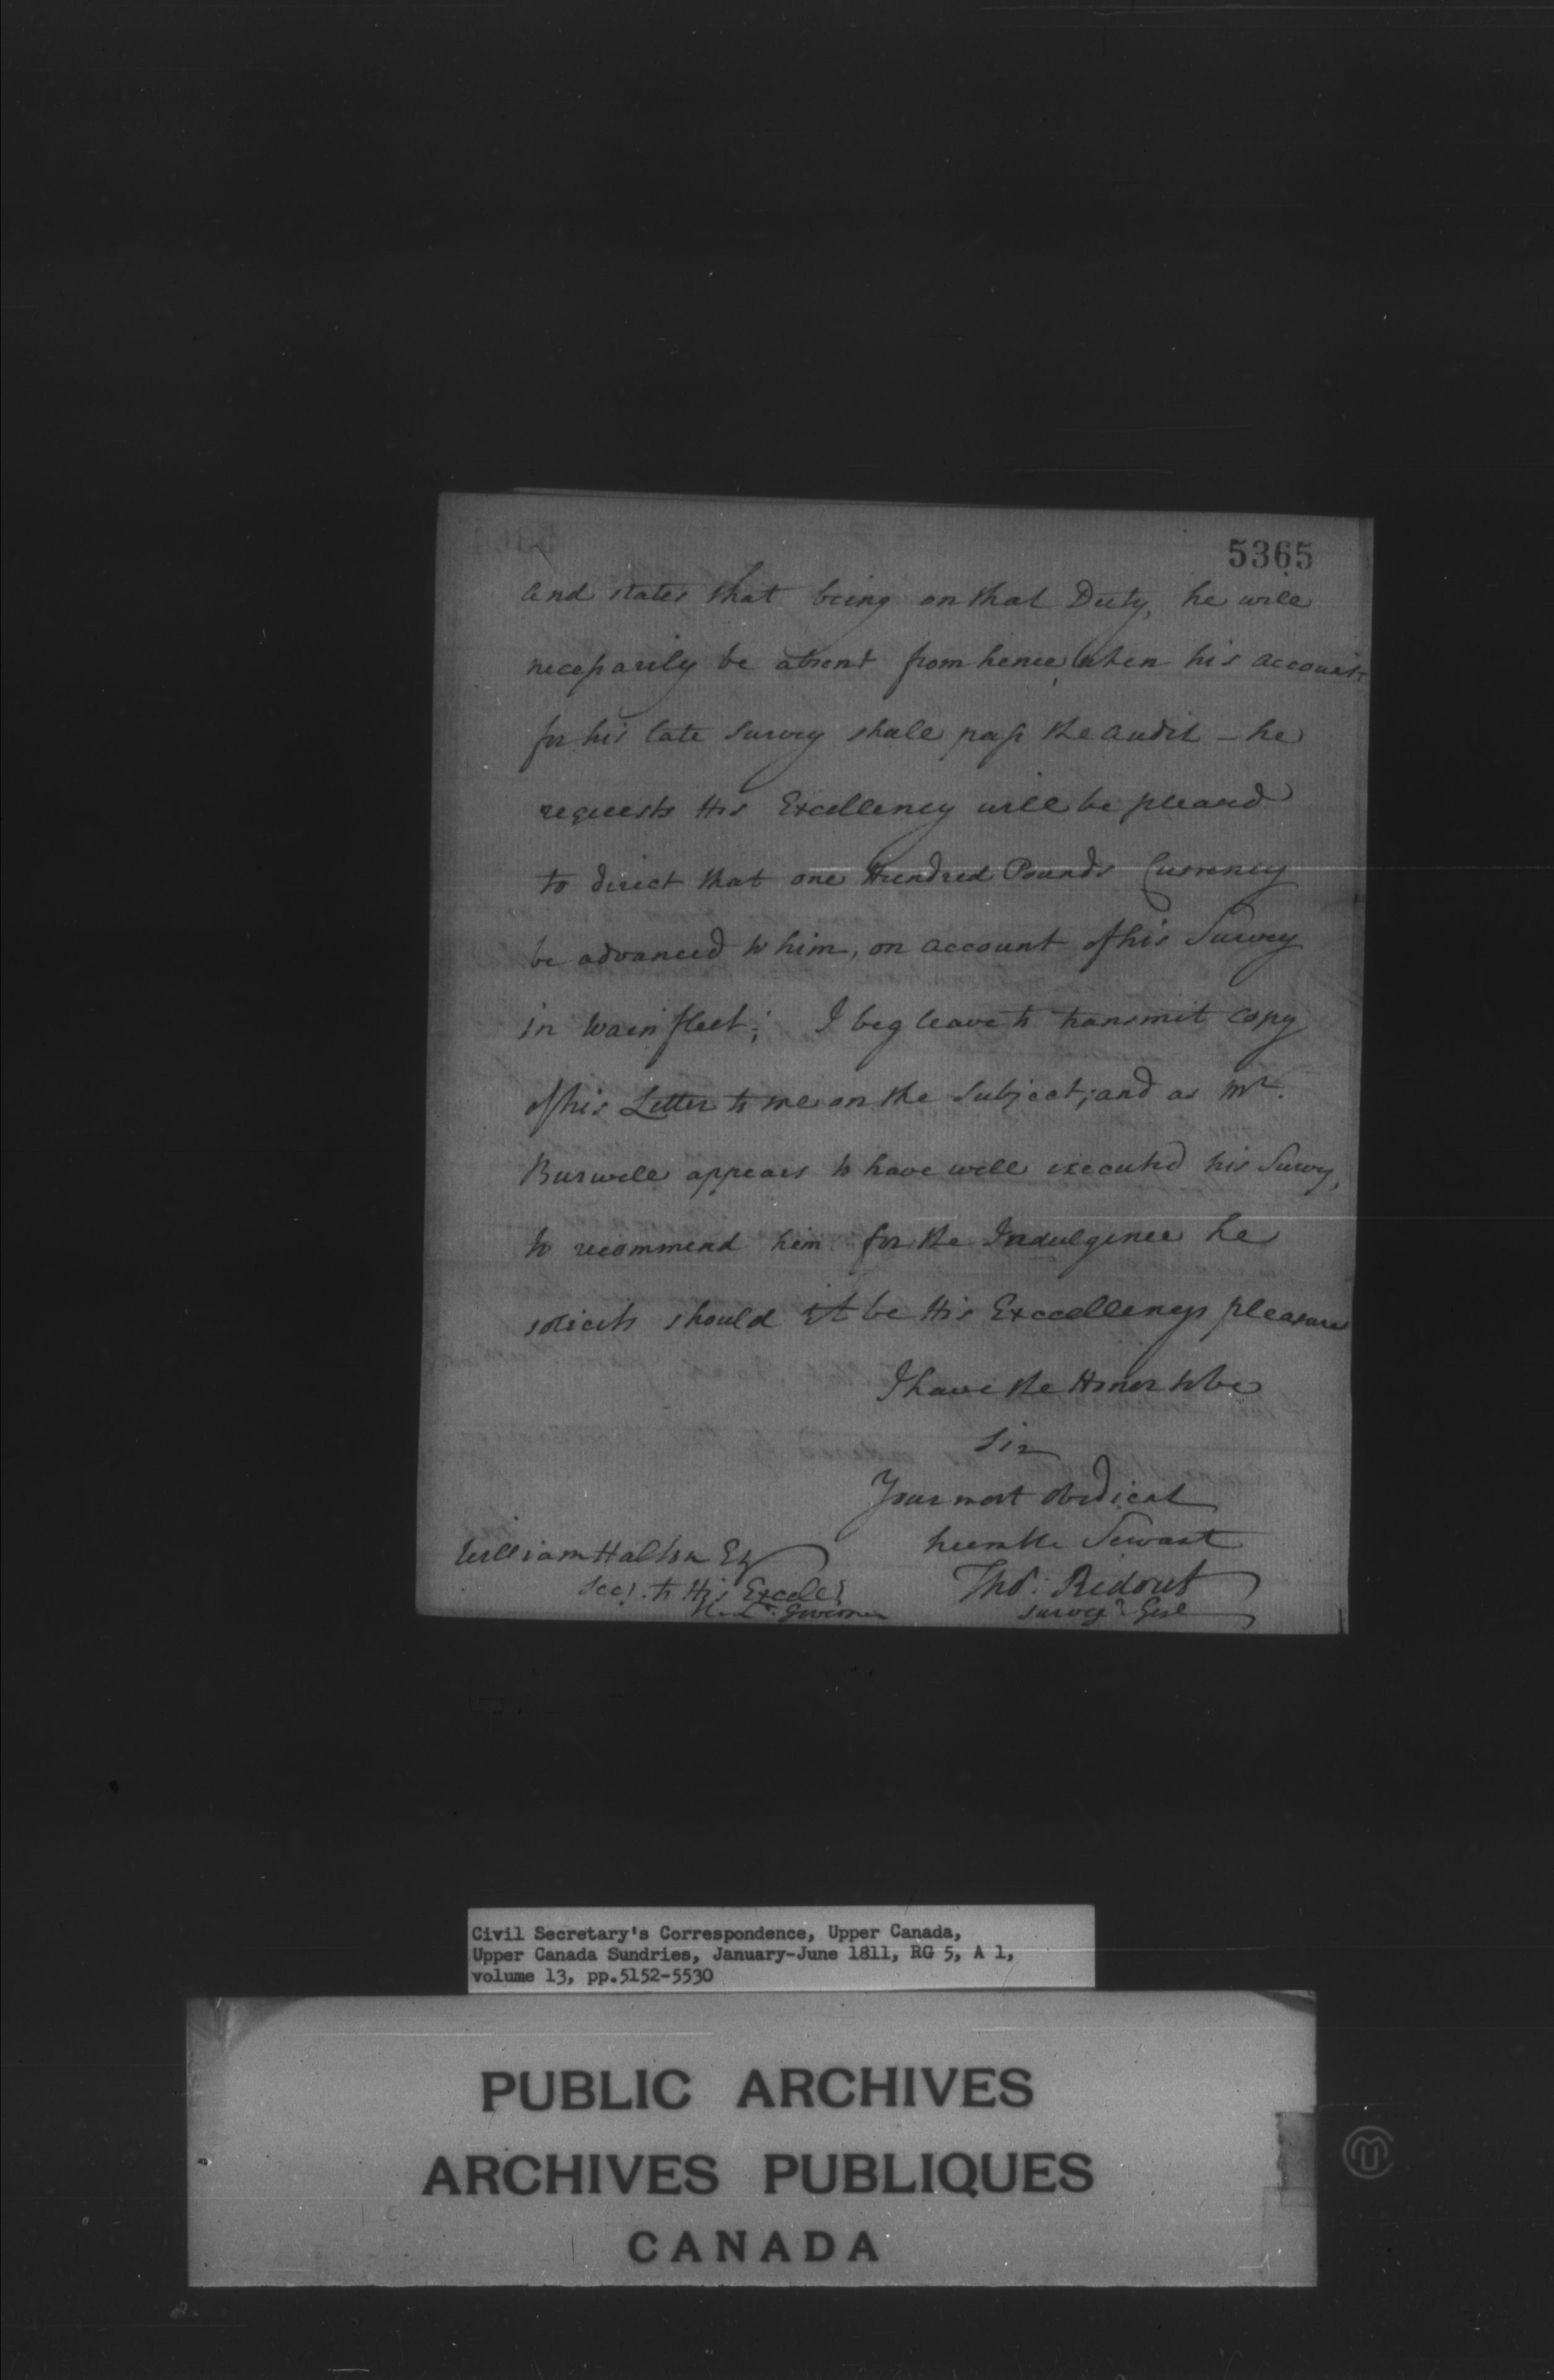 5365
and states that being on that Duty, he will
necessarily be absent from hence, when his accounts
for his late Survey shall pass the audit – he
requests His Excellency will be pleased
to direct that one Hundred Pounds Currency
be advanced to him, on account of his Survey
in Wainfleet; I beg leave to transmit copy
of his Letter to me on the Subject; and as Mr.
Burwell appears to have well executed his Survey,
to recommend him for the Indulgence he
solicits should it be His Exccellencys pleasure
I have the Honor to be
Sir
Your most obedient
humble Servant
Thos. Ridout
Surveyr Genl
William Halton Esq
Secy. to His Excelly
the Lt. Governor
Civil Secretary's Correspondence, Upper Canada,
Upper Canada Sundries, January-June 1811, RG 5, A 1,
volume 13, pp.5152-5530
PUBLIC ARCHIVES
ARCHIVES PUBLIQUES
CANADA